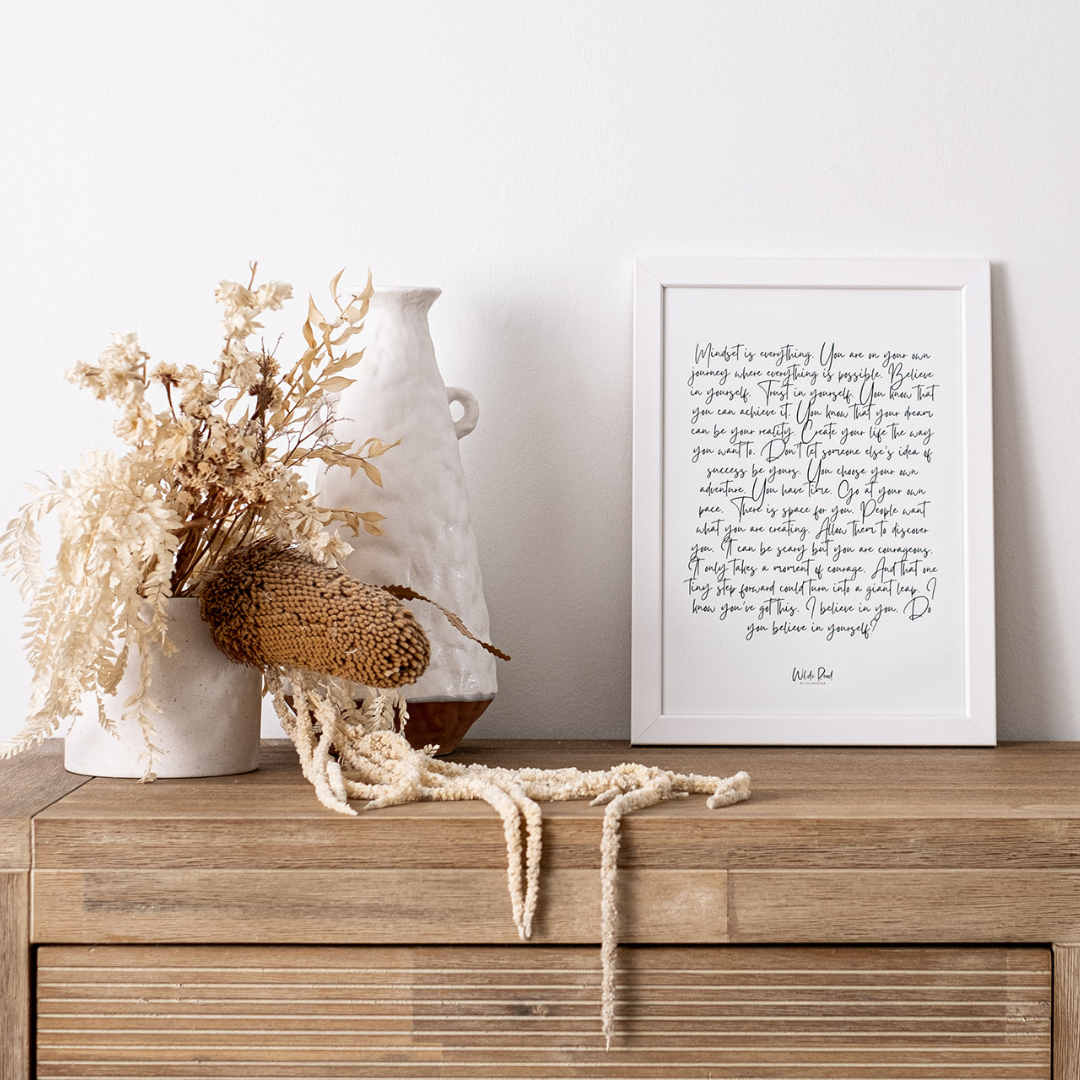 Mindset is everything. You are on your own
journey where everything is possible. Believe
in yourself. Trust in yourself. You know that
you can achieve it. You know that your dream
can be your reality. Create your life the way
you want to. Don't let someone else's idea of
success be yours. You choose your own
adventure. You have time. Go at your own
pace. There is space for you. People want
what you are creating. Allow them to discover
you. It can be scary but you are courageous.
It only takes a moment of courage. And that one
tiny step forward could turn into a giant leap. I
know you've got this. I believe in you. Do
you believe in yourself?